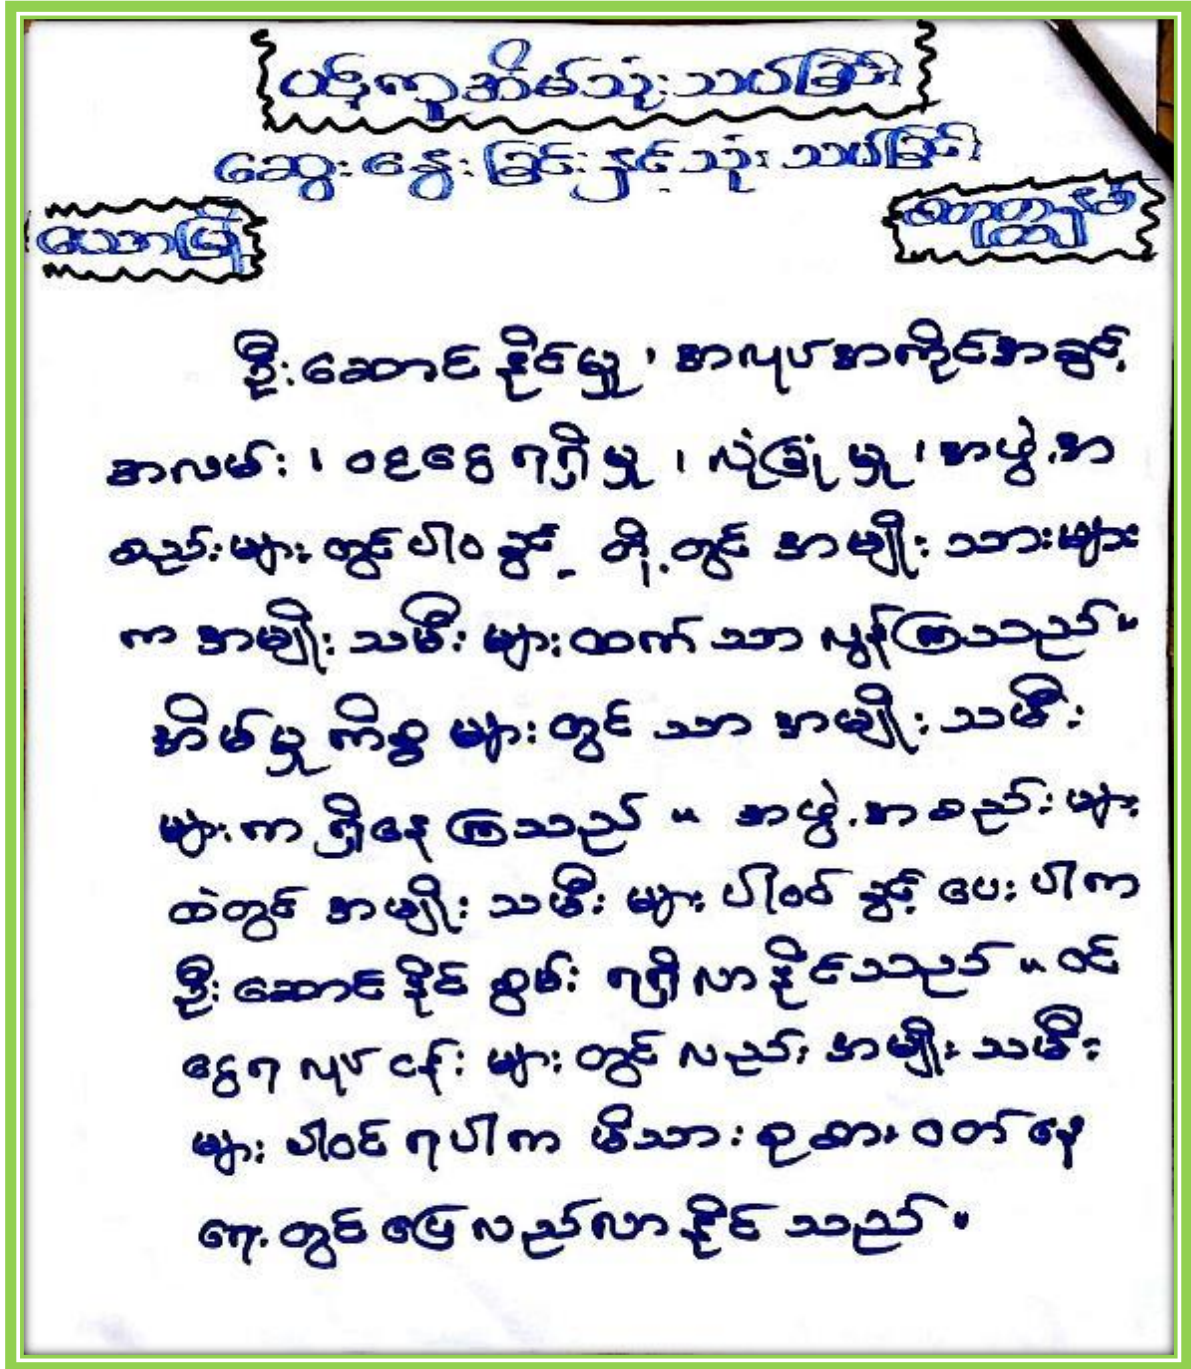 ဆွေးနွေးခြင်းနှင့်သုံးသပ်ခြင်း
ဦးဆောင်နိုင်မှု၊ အလုပ်အကိုင်အခွင့်
အလမ်း၊ ဝင်ငွေရရှိမှု၊ လုံခြုံမှု၊ အဖွဲ့အ
စည်းများတွင်ပါဝခွင့် တို့တွင် အမျိုးသားများ
က အမျိုးသမီးများထက်သာ လွန်ကြသည်။
အိမ်မှုကိစ္စများတွင်သာ အမျိုးသမီး
များက ရှိနေကြသည်။ အဖွဲ့အစည်းများ
ထဲတွင် အမျိုးသမီးများ ပါဝင်ခွင့်ပေးပါက
ဦးဆောင်နိုင်စွမ်း ရရှိလာနိုင်သည်။ ဝင်
ငွေရလုပ်ငန်းများတွင်လည်း အမျိုးသမီး
များ ပါဝင်ရပါက မိသားစုစားဝတ်နေ
ရေးတွင် ပြေလည်လာနိုင်သည်။